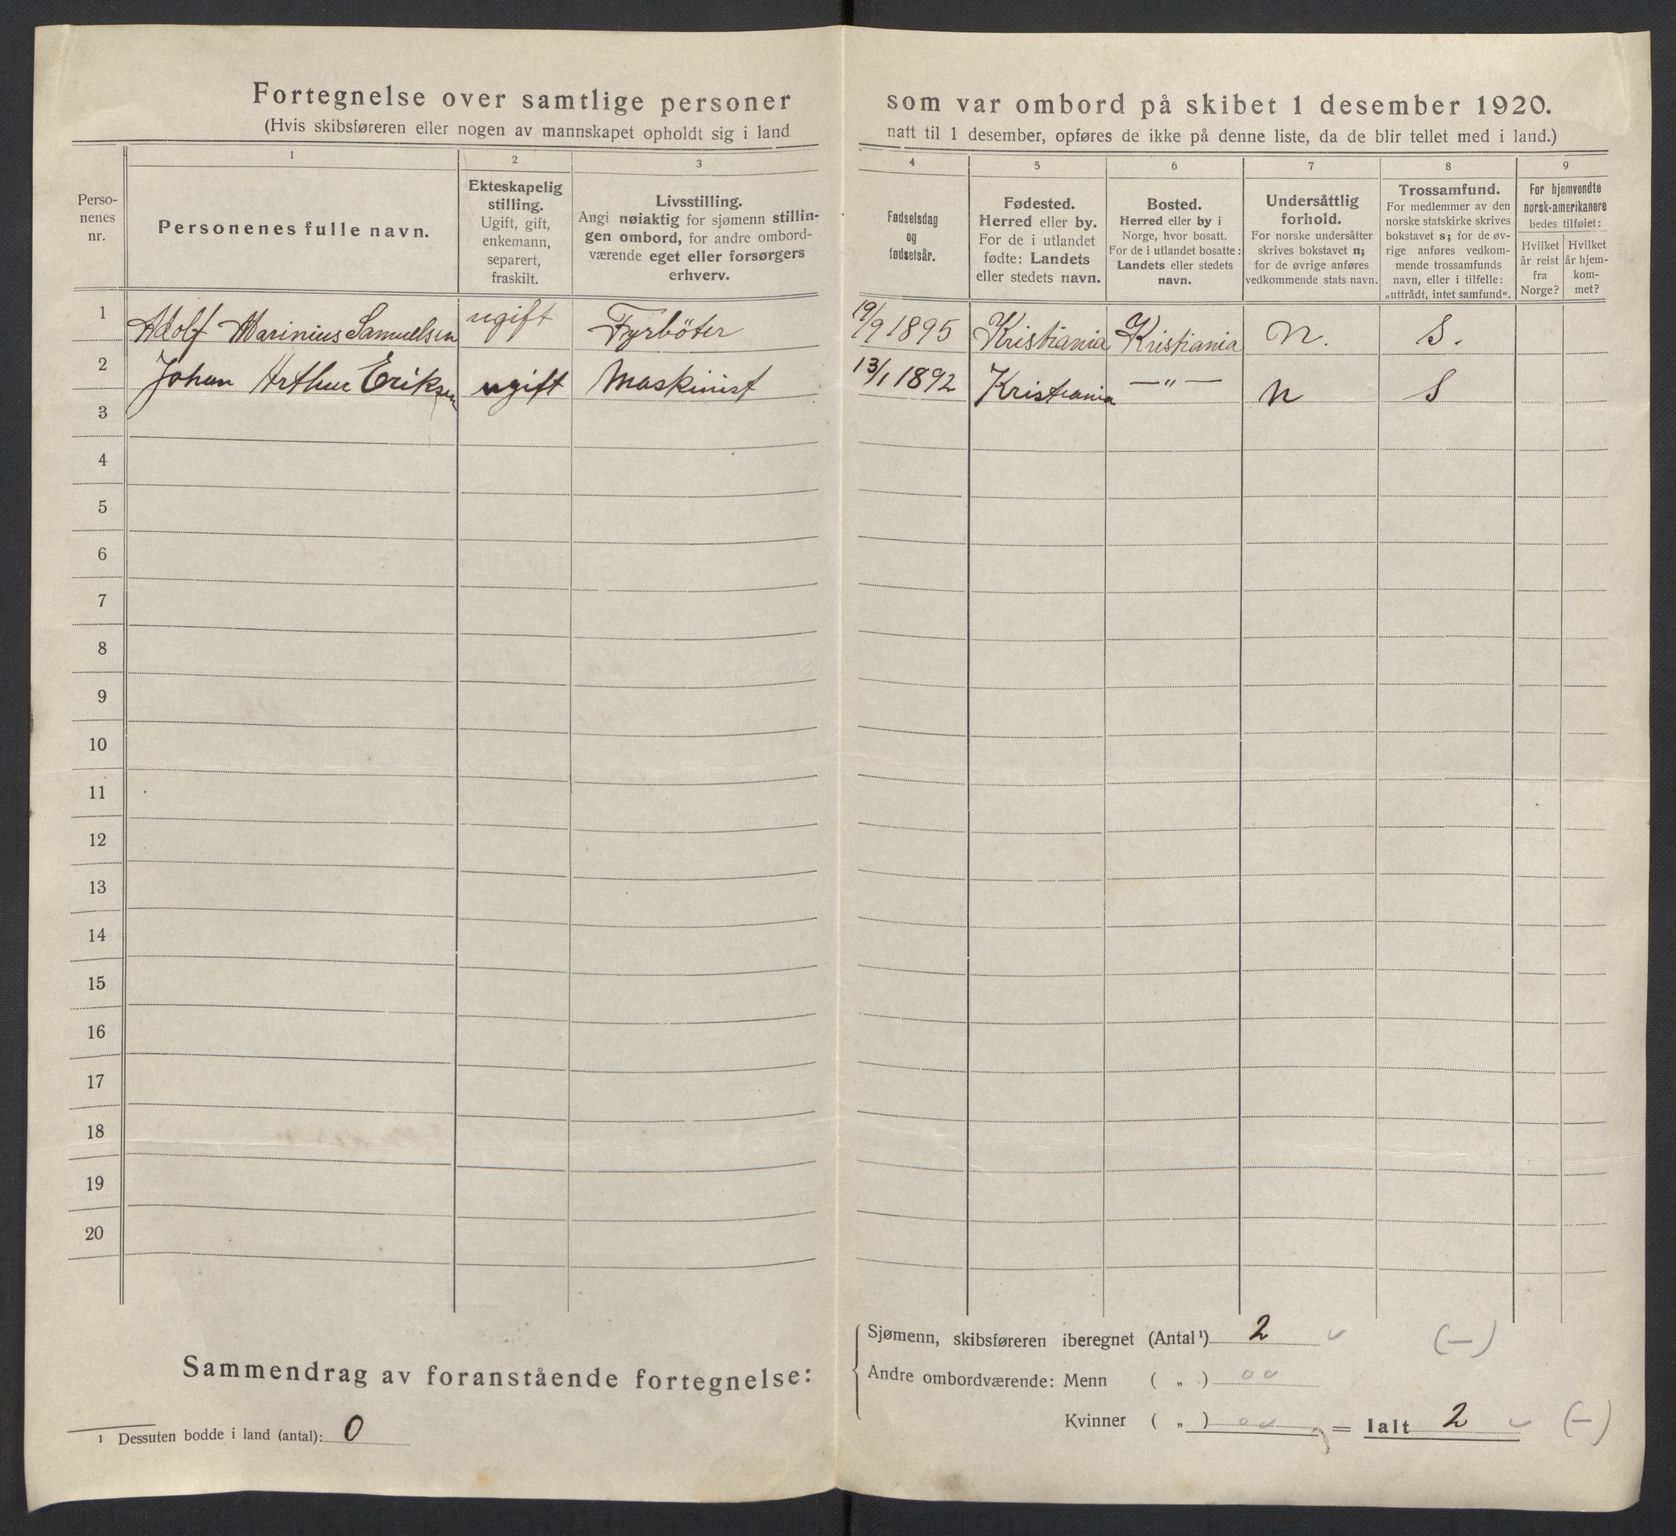 Fortegnelse over samtlige personer som var ombord på skibet 1 desember 1920.
(Hvis skibsføreren eller nogen av mannskapet opholdt sig i land natt til 1 desember, opføres de ikke på denne liste, da de blir tellet med i land.)
1 2 3 4 5 6 7 8 9
Perso-
nenes
nr.
Personenes fulle navn.
Ekteskapelig
stilling.
Ugift, gift,
enkemann,
separert,
fraskilt.
Livsstilling.
Angi nøiaktig for sjømenn stillin-
gen ombord, for andre ombord-
værende eget eller forsørgers
erhverv.
Fødselsdag
og
fødselsår.
Fødested.
Herred eller by.
For de i utlandet
fødte: Landets
eller stedets navn.
Bosted.
Herred eller by i
Norge, hvor bosatt.
For de i utlandet bosatte:
Landets eller stedets
navn.
Undersåttlig
forhold.
For norske undersåtter
skrives bokstavet n;
for de øvrige anføres
vedkommende stats navn.
Trossamfund.
For medlemmer av den
norske statskirke skrives
bokstavet s; for de øv-
rige anføres vedkom-
mende trossamfunds
navn, eller i tilfelle:
„uttrådt, intet samfund“.
For hjemvendte
norsk-amerikanere
bedes tilføiet:
Hvilket
år reist
fra
Norge?
Hvilket
år hjem-
kom-
met?
1 Adolf Marinius Samuelsen ugift Fyrböter 19/9 1895 Kristiania Kristiania N. S.
2 Johan Arthur Eriksen ugift Maskinist 13/1 1892 Kristiania —„— N S
3
4
5
6
7
8
9
10
11
12
13
14
15
16
17
18
19
20
Sammendrag av foranstående fortegnelse:
Sjømenn, skibsføreren iberegnet (Antal¹) 2 (—)
Andre ombordværende: Menn ( „ ) 00
Kvinner ( „ ) 00 = Ialt 2 (—)
¹ Dessuten bodde i land (antal): 0